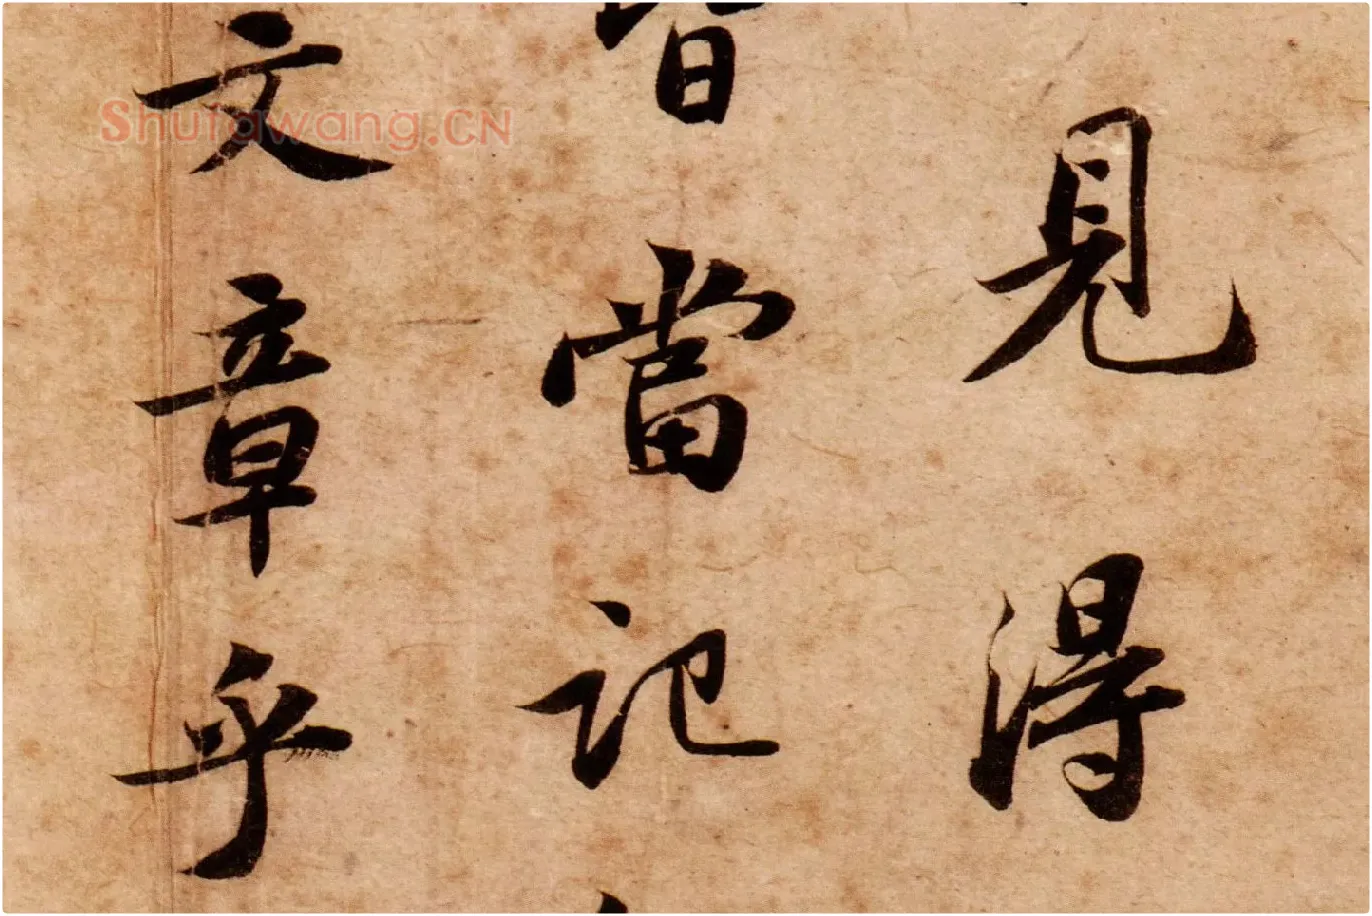 見得
當記
文章乎
Shufawang.CN